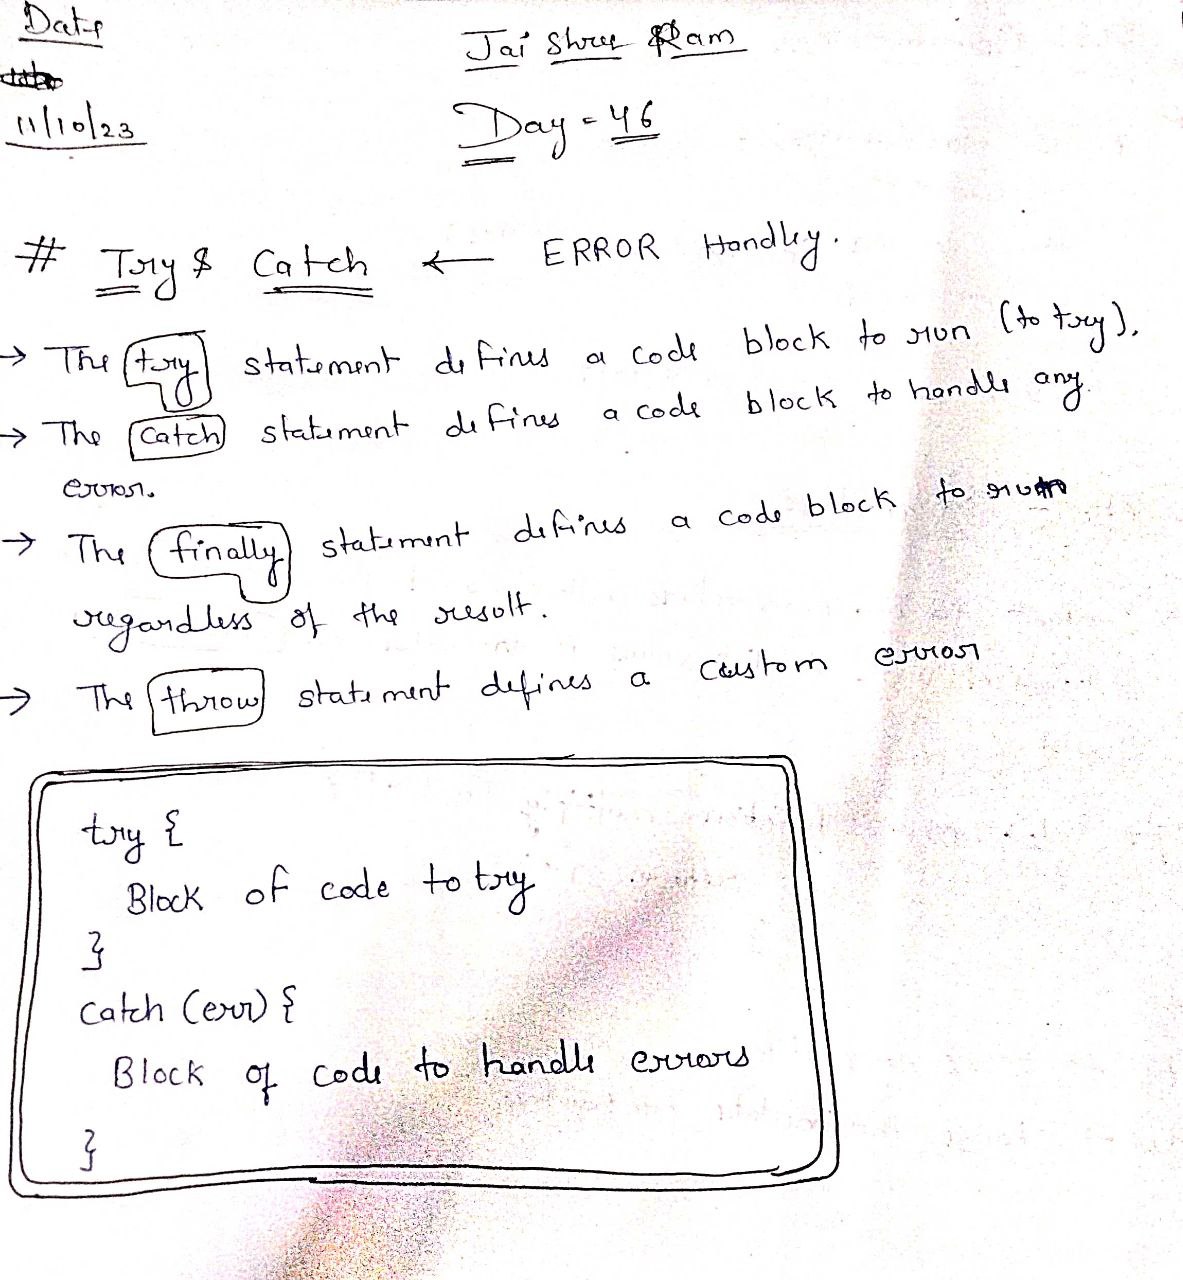 Date
Jai Shree Ram
11/10/23
Day = 46
# Try & Catch ← ERROR Handling.
→ The try statement defines a code block to run (to try).
→ The Catch statement defines a code block to handle any
error.
→ The finally statement defines a code block to run
regardless of the result.
→ The throw statement defines a custom error
try {
Block of code to try
}
catch (err) {
Block of code to handle errors
}